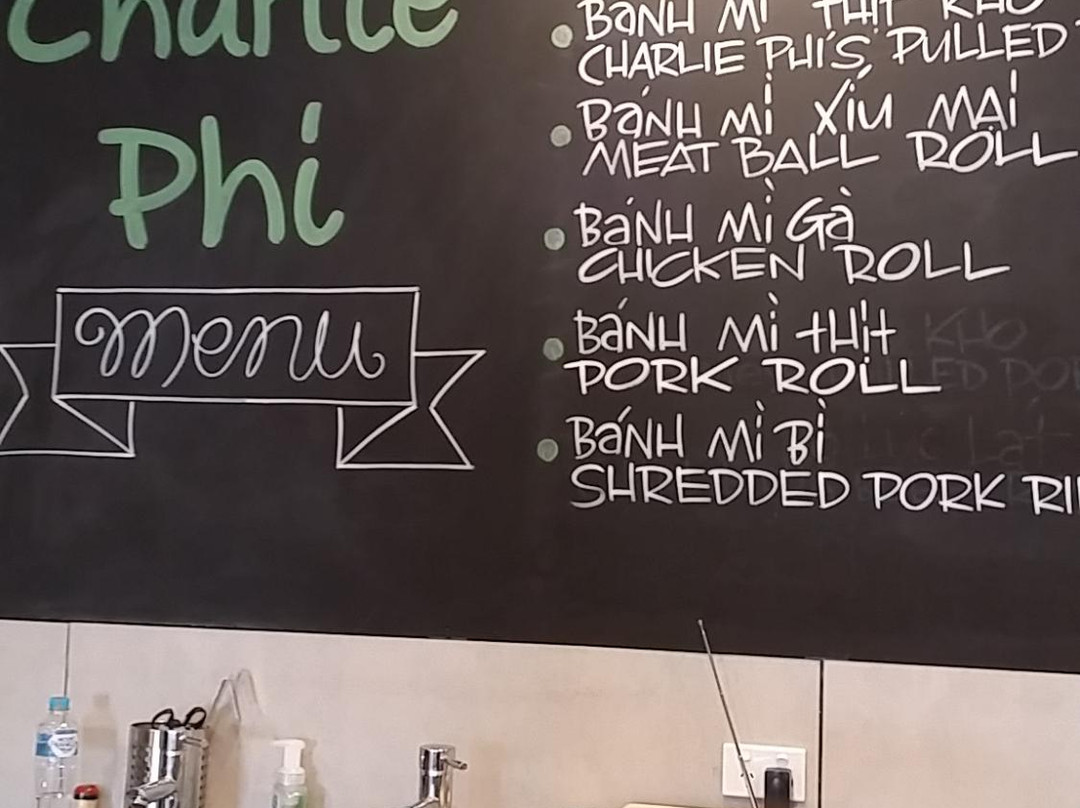 Charlie
Phi
menu
BÁNH MÌ THỊT KHO
CHARLIE PHI'S PULLED
BÁNH MÌ XÍU MẠI
MEAT BALL ROLL
BÁNH MÌ GÀ
CHICKEN ROLL
BÁNH MÌ THỊT
PORK ROLL
BÁNH MÌ BÌ
SHREDDED PORK